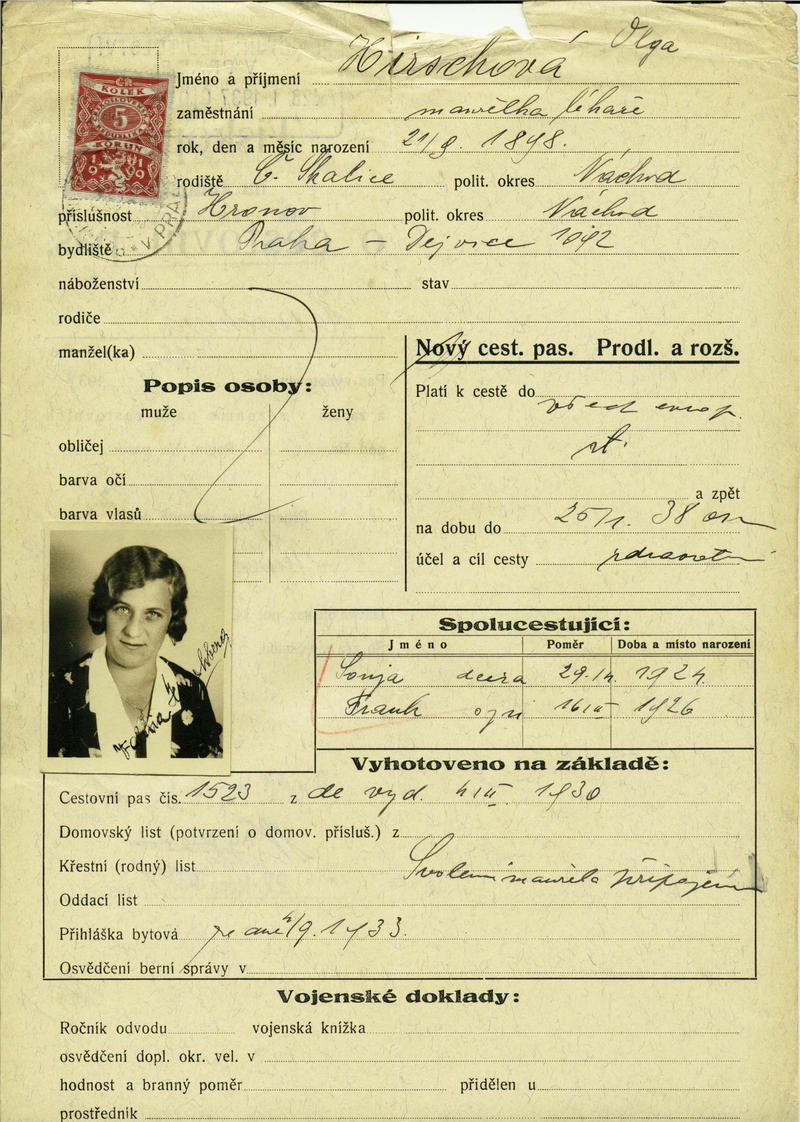 Olga
Jméno a příjmení Hirschová
zaměstnání manželka lékaře
rok, den a měsíc narození 21/9. 1898.
rodiště Č. Skalice polit. okres Náchod
příslušnost Hronov polit. okres Náchod
bydliště Praha – Dejvice 1092
náboženství stav
rodiče
manžel(ka)
ČR
KOLEK
5
KORUN
1919
V PRA
Popis osoby:
muže ženy
obličej
barva očí
barva vlasů
Nový cest. pas. Prodl. a rozš.
Platí k cestě do všech evrop.
st.
a zpět
na dobu do 25/1. 38
účel a cíl cesty zdravotní
Spolucestující:
Jméno Poměr Doba a místo narození
Sonja dcera 1924
Frank syn 1926
Vyhotoveno na základě:
Cestovní pas čís. 1523 z de vyd. 1930
Domovský list (potvrzení o domov. přísluš.) z
Křestní (rodný) list
Svolení manžela připojeno
Oddací list
Přihláška bytová ze dne /9. 1933.
Osvědčení berní správy v
Vojenské doklady:
Ročník odvodu vojenská knížka
osvědčení dopl. okr. vel. v
hodnost a branný poměr přidělen u
prostředník